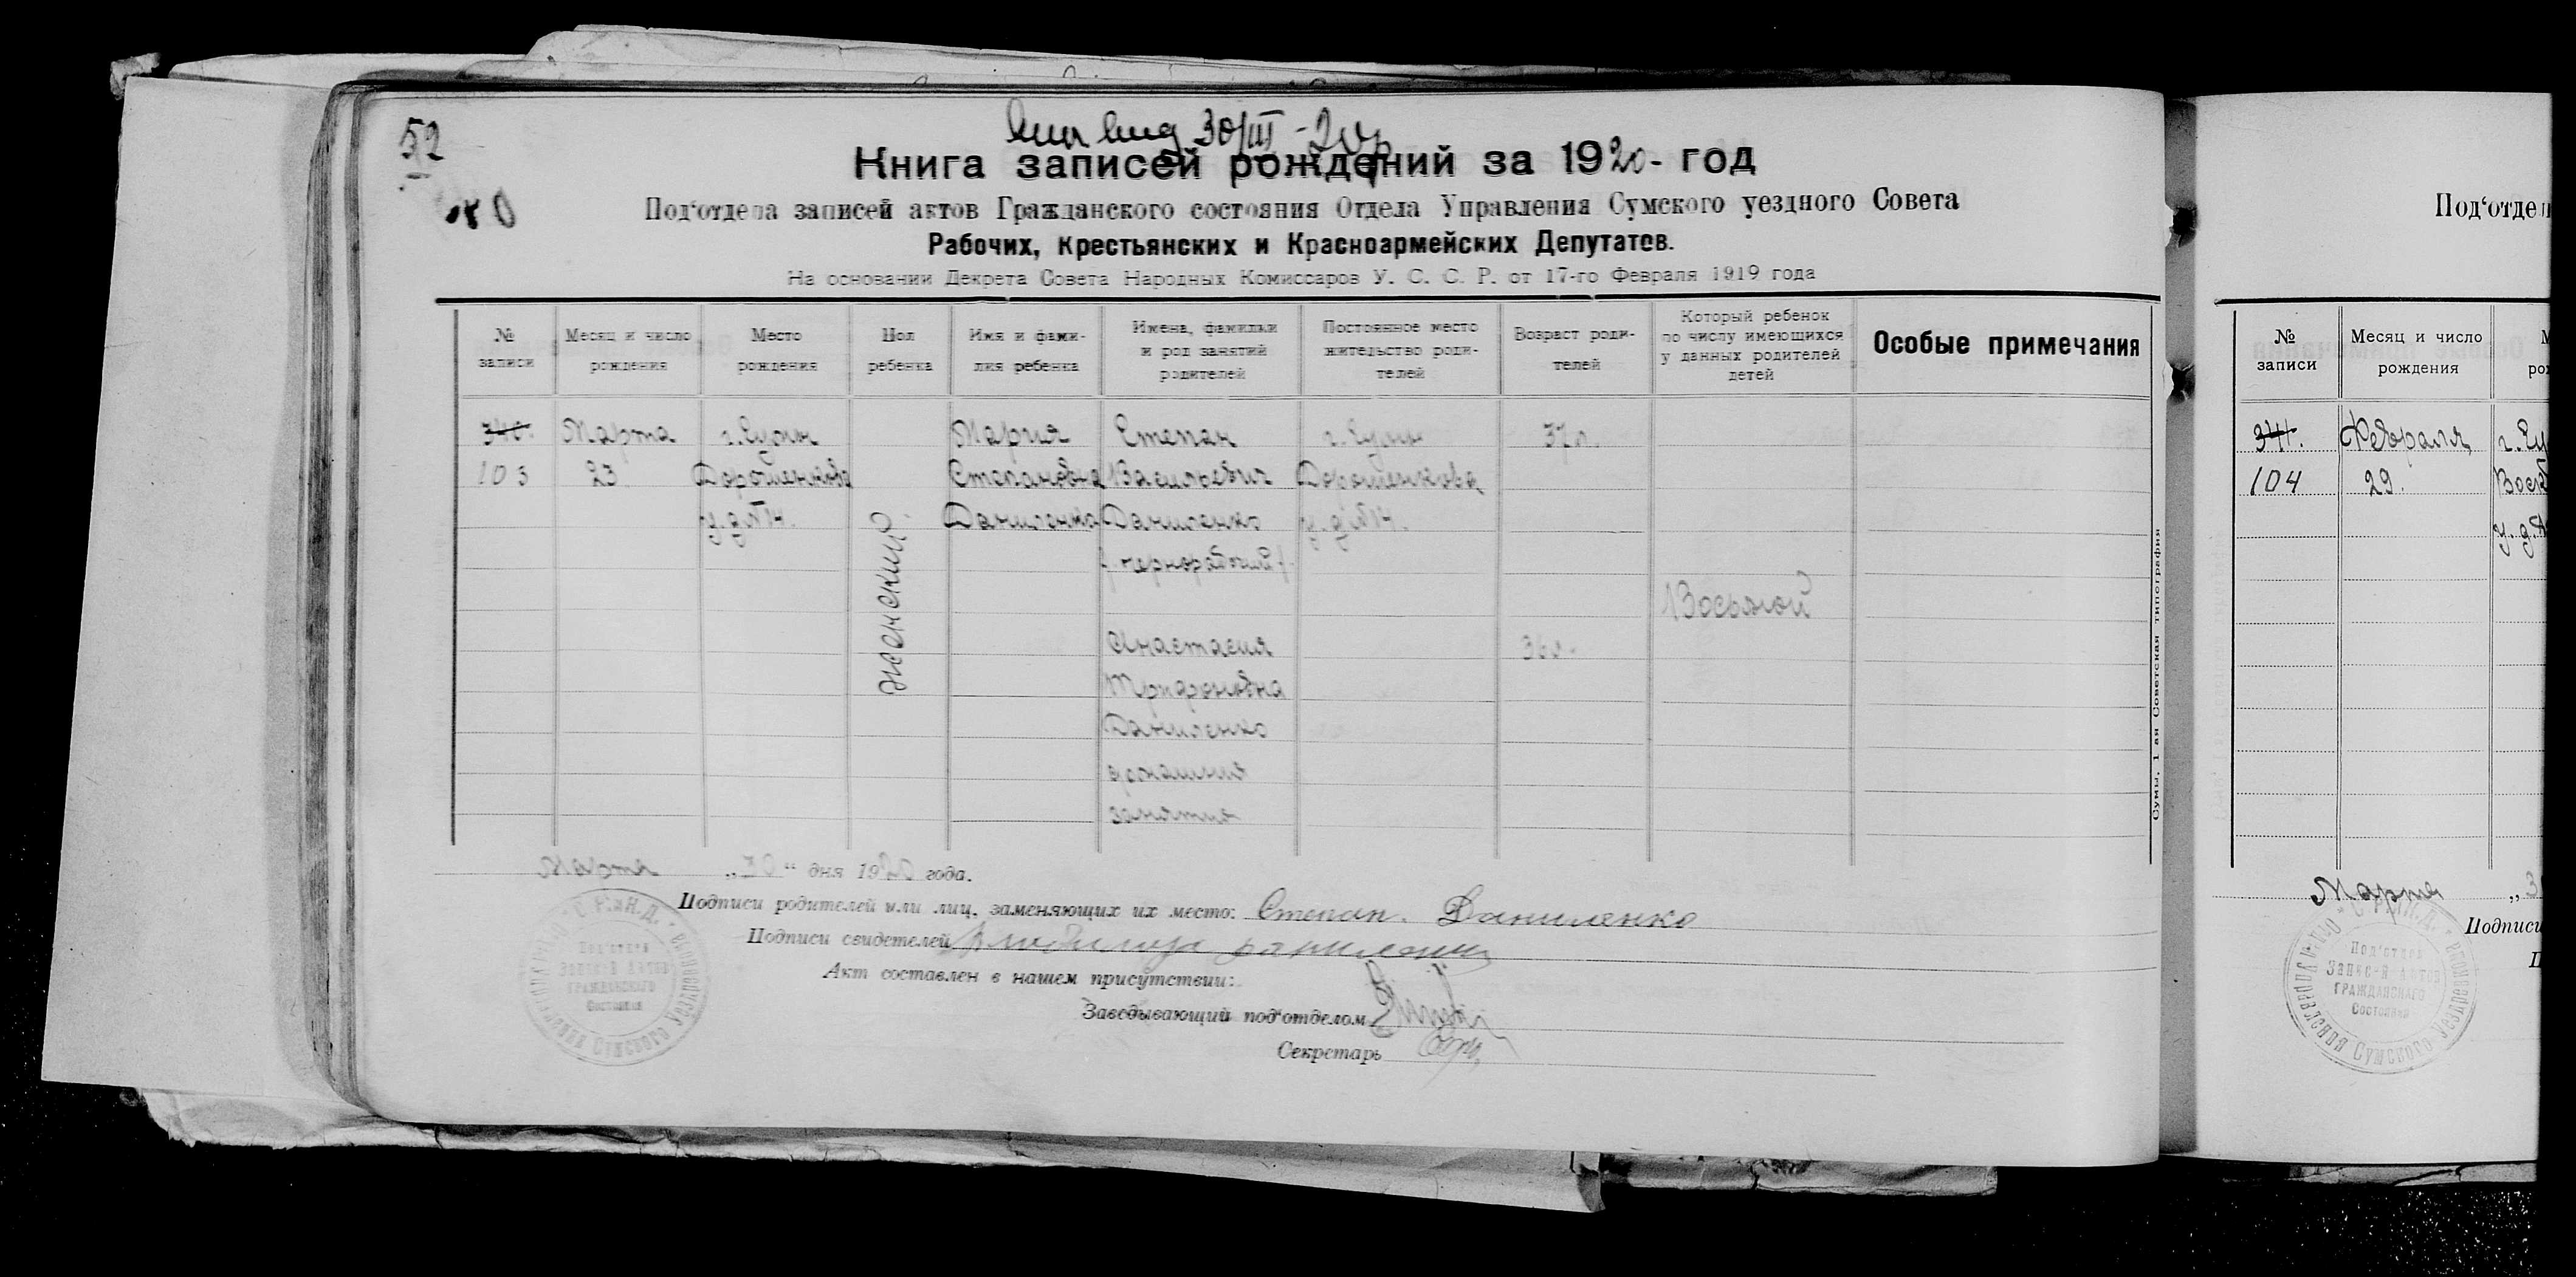 52
30/III - 20
Книга записей рождений за 1920- год
Под‘отдела записей актов Гражданского состояния Отдела Управления Сумского уездного Совета
Рабочих, Крестьянских и Красноармейских Депутатов.
На основании Декрета Совета Народных Комиссаров У. С. С. Р. от 17-го Февраля 1919 года
№ записи
Месяц и число рождения
Место рождения
Пол ребенка
Имя и фами-
лия ребенка
Имена, фамильи
и род занятий
родителей
Постоянное место
жительство роди-
телей
Возраст роди-
телей
Который ребенок
по числу имеющихся
у данных родителей
детей
Особые примечания
340.
103
Марта
23
г. Сумы
Дорошенкова
у. д № 14.
женский
Мария
Степановна
Даниленко
Степан
Васильевич
Даниленко
чернорабочий
Анастасия
Трифоновна
Даниленко
домашния
занятия
г. Сумы
Дорошенкова
у. д № 14.
37 л.
36 л.
Восьмой
Сумы, 1-ая Советская типография
Марта „30“ дня 1920 года.
Подписи родителей или лиц, заменяющих их место: Степан. Даниленко
Подписи свидетелей
Акт составлен в нашем присутствии:
Заведывающий под‘отделом
Секретарь
Под‘отдела
Записей Актов
Гражданского
Состояния
Под‘отдел
№ записи
Месяц и число
рождения
341.
104
Февраля
29.
г. Су
Воск
у. д. №
Марта „3
Подписи
Под‘отдела
Записей Актов
Гражданскаго
Состояний
Управления Сумского Уездверсовета